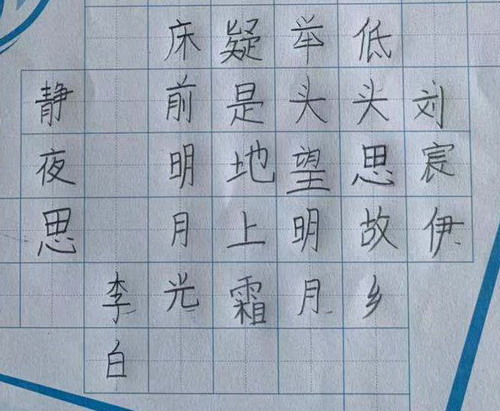 静夜思
李白
床前明月光
疑是地上霜
举头望明月
低头思故乡
刘宸伊